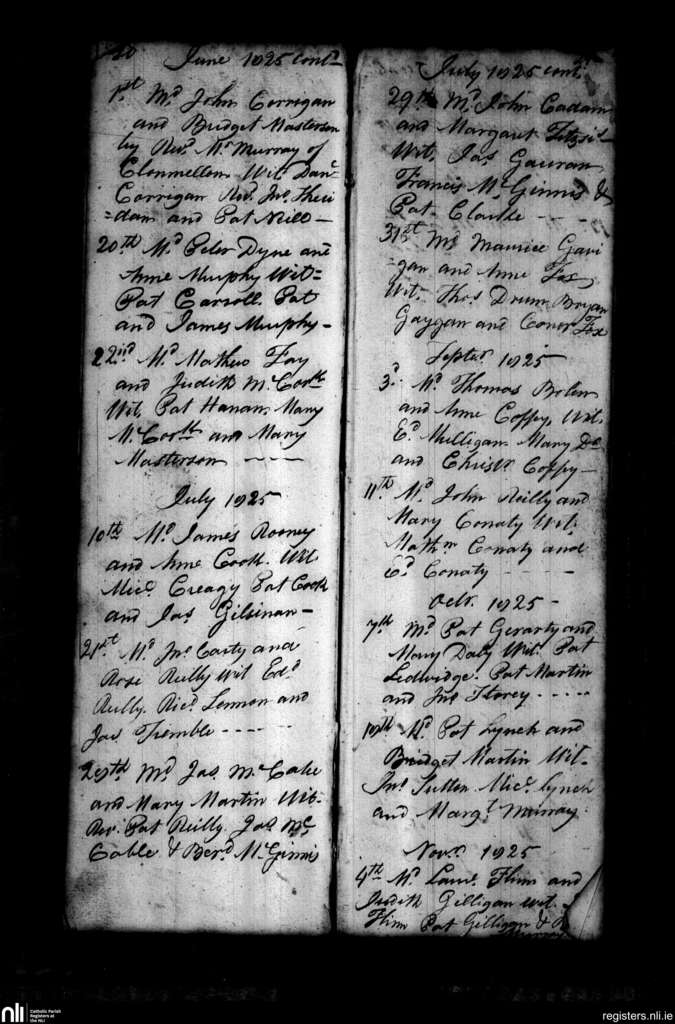 June 1825 cont.d
1st Md John Corrigan
and Bridget Masterson
by Revd Mr Murray of
Clonmellon Wit. Danl
Corrigan Revd Jno Sheri
=dan and Pat Neill —
20th Md Peter Dyne and
Anne Murphy Wit=
Pat Carroll Pat
and James Murphy -
22nd Md Mathew Fay
and Judith
Wit. Pat Hanan, Mary
and Mary
Masterson ————
July 1825
10th Md James Rooney
and Anne Cook. Wit
Micl Creagy Pat Cook
and Jas Gilsinan —
21st Md Jno Carty and
Rose Reilly Wit Edd
Reilly. Ricd Lennon and
Jas Tremble -----
Md Jas McCabe
and Mary Martin Wit-
Rev. Pat Reilly. Jas Mc
Cable & Bernd McGinnis
July 1825 contd
29th Md John Cadam
and Margaret
Wit. Jas Gauran
Francis McGinnis &
Pat Clarke - - -
31st Md Maurice Gavi
gan and Anne Fox
Wit. Thos Drum Bryan
Gaygan and Conor Fox
Septer 1825
3d Md Thomas
and Anne Coffy, Wit.
Ed Mulligan Mary Do
and Christr Coffy —
11th Md John Reilly and
Mary Conaty Wit.
Mathw Conaty and
Ed Conaty - - - - -
Octr. 1825 -
7th Md Pat Gerarty and
Mary Daly Wit. Pat
Ledwidge. Pat Martin
and Jno Storey - - - - -
Md Pat Lynch and
Bridget Martin Wit-
Jno Sutton Micl Lynch
and Margt Murray.
Novr 1825
4th Md Lawr. Flinn and
Judith Gilligan wit.
Flinn Pat Gilligan &
nli
Catholic Parish
Registers at
the NLI
registers.nli.ie